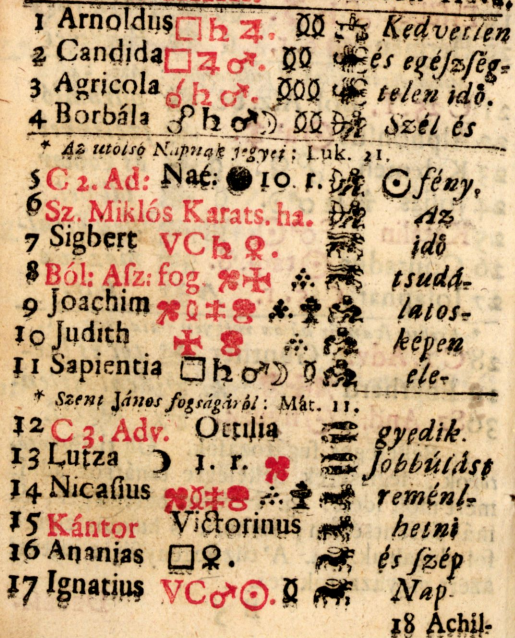 1 Arnoldus □ ♄ ♃. Kedvetlen
2 Candida □ ♃ ♂. és egéſzſég-
3 Agricola ☌ ♄ ♂. telen idő.
4 Borbála ☍ ♄ ♂ ☽ Szél és
* Az utolsó Napnak jegyei: Luk. 21.
5 C 2. Ad: Naé: ● 10. r. ☉ fény,
6 Sz. Miklós Karats. ha. Az
7 Sigbert VC ♄ ♀. idő
8 Ból: Aſz: fog tsudá-
9 Joachim latos-
10 Judith képen
11 Sapientia □ ♄ ♂ ☽ ele-
* Szent János fogságáról: Mát. 11.
12 C 3. Adv. Ottilia gyedik.
13 Lutza ☽ 1. r. Jobbúlást
14 Nicaſius reménl-
15 Kántor Victorinus hetni
16 Ananias □ ♀. és ſzép
17 Ignatius VC ♂ ☉. Nap
18 Achil-